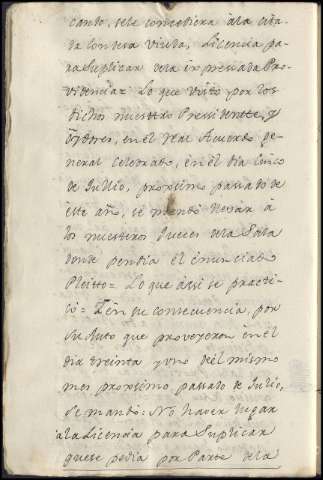 cando, sele concediera ala cita-
da Condesa Viuda, Licencia pa-
ra Suplicar dela expressada Pro-
videncia: Lo que visto por los
dichos nuestro Pressidente, y
Oydores, en el real Acuerdo ge-
neral celebrado, en el dia cinco
de Jullio, proximo passado de
este año, se mandó llevar à
los nuestros Jueces dela Sala
donde pendia el enunciado
Pleitto = Lo que àsi se practi-
cò = Y en su consecuencia, por
su Auto que proveyeron en el
dia treinta y uno del mismo
mes proximo passado de Julio,
se mandò: No haver lugar
ala Licencia para Suplicar
quese pedia por Parte dela